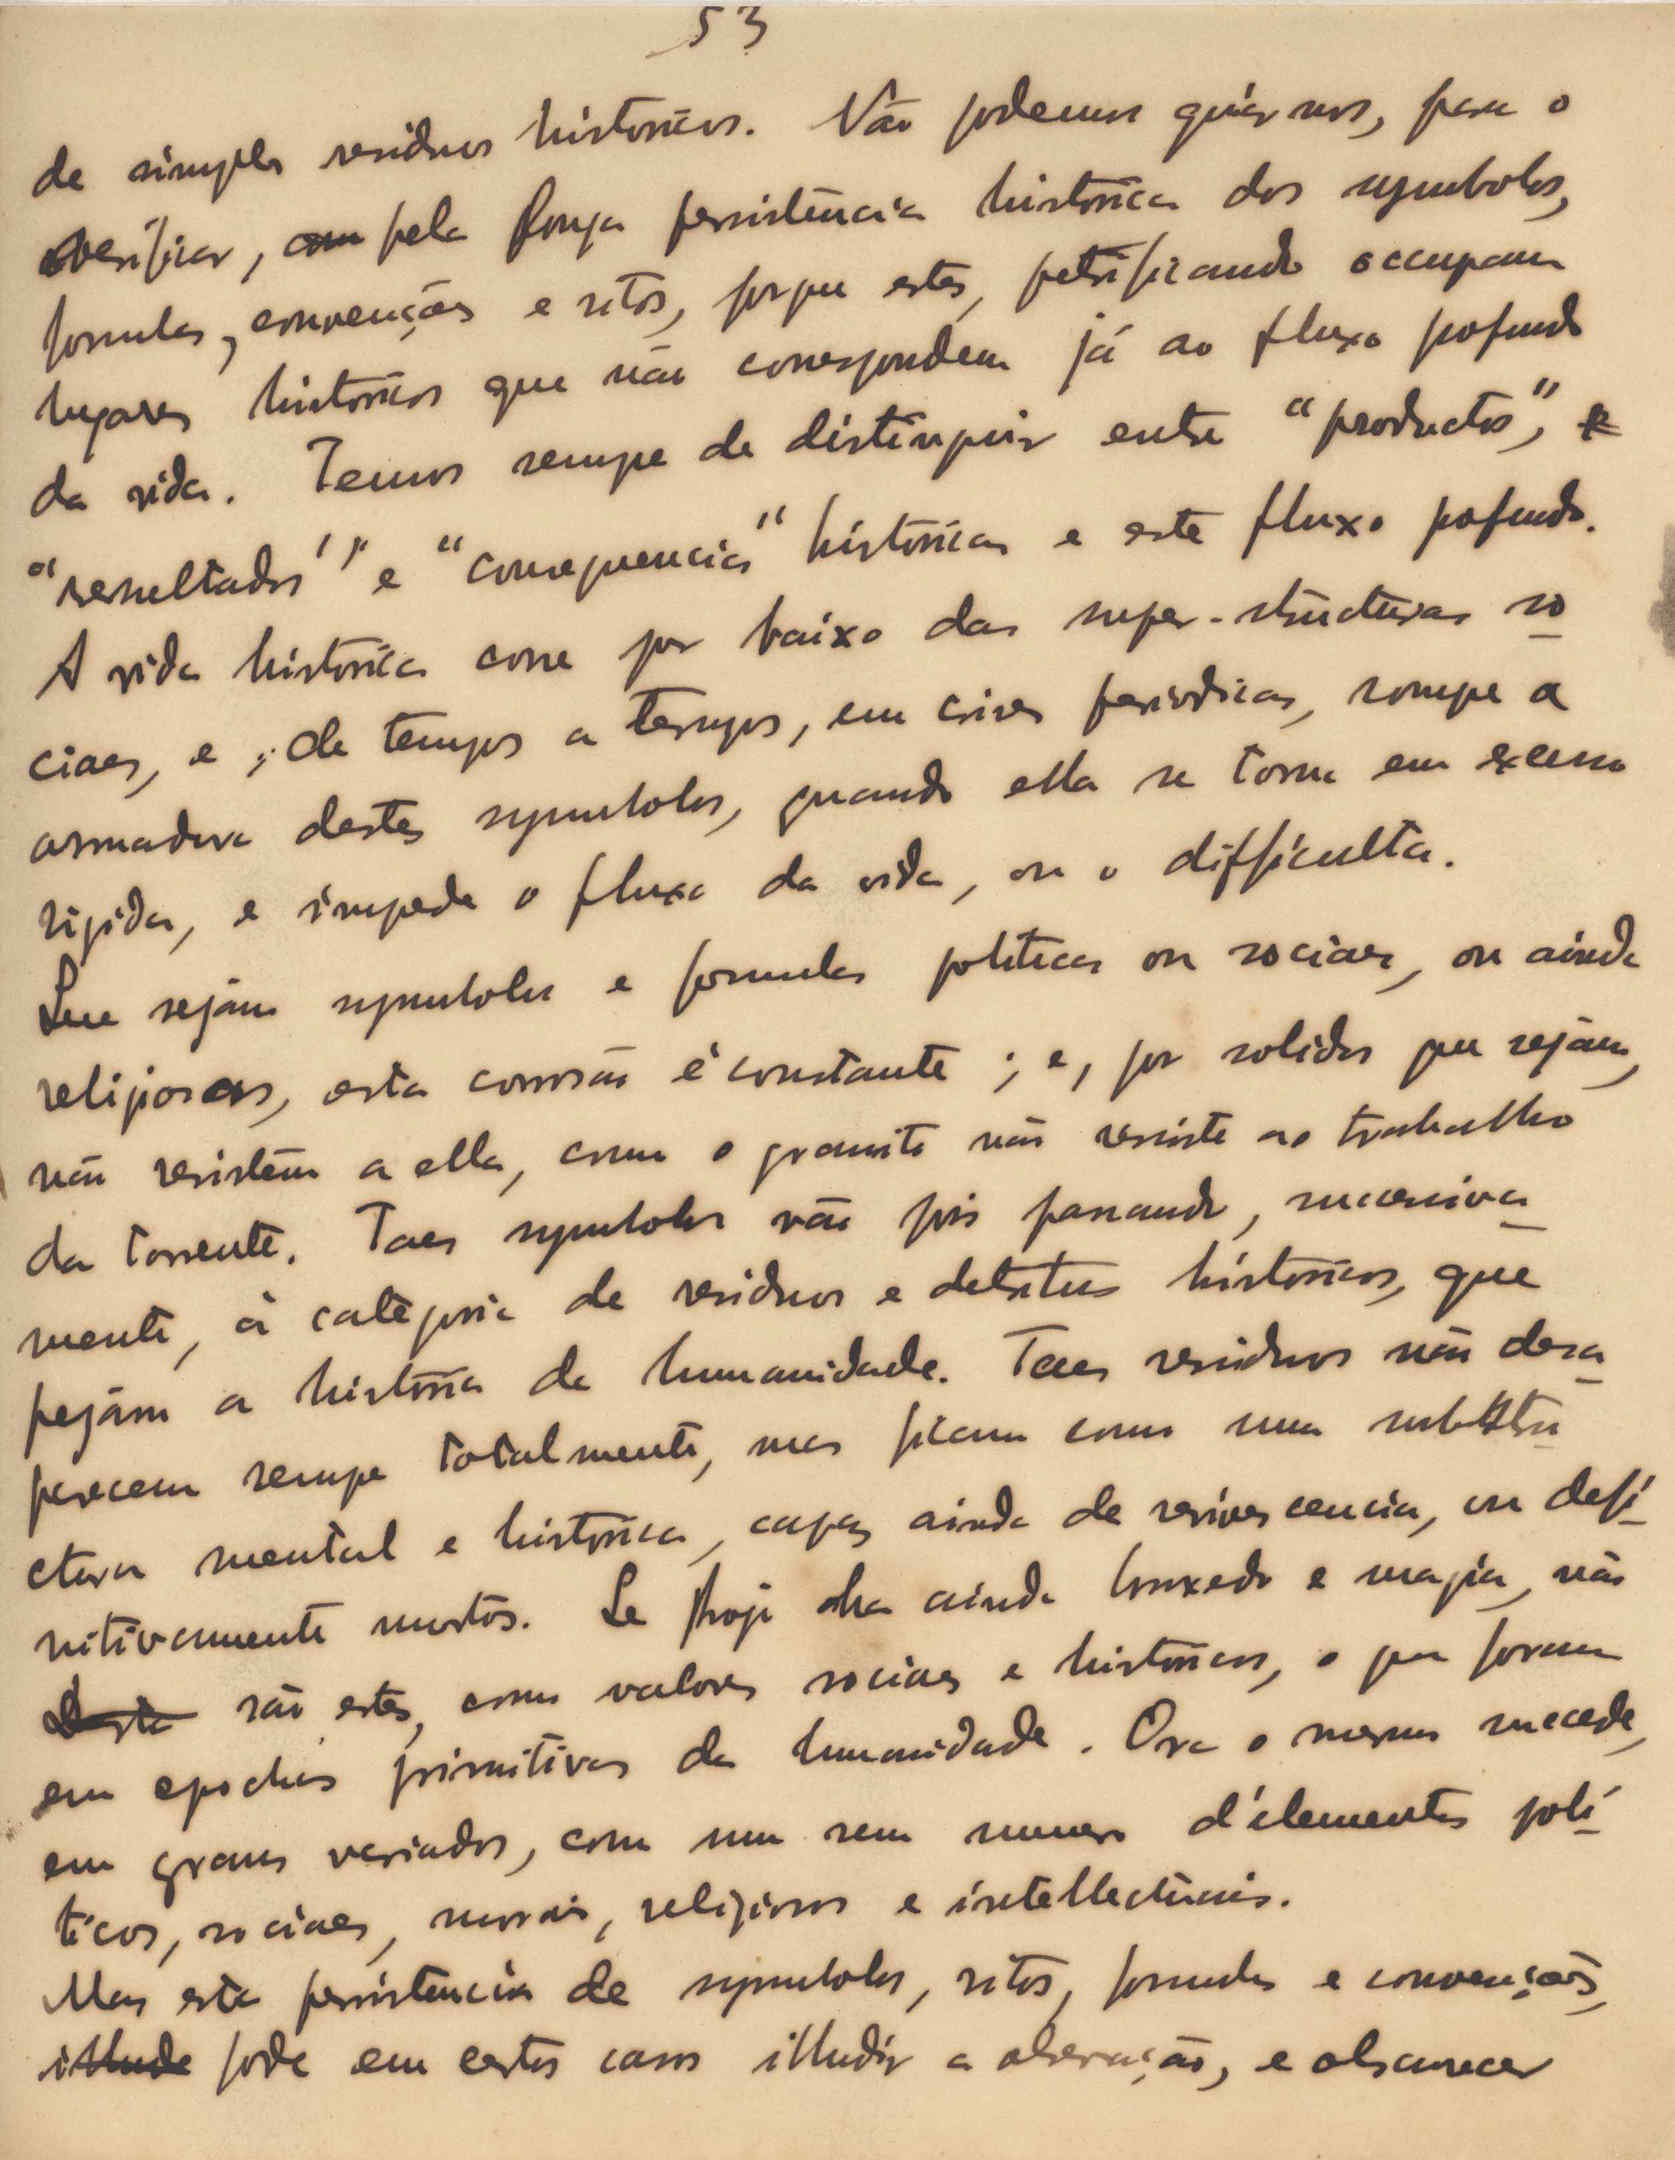 53
de simples residuos historicos. Não podemos guiar nos, para o
verificar, com pela longa persistencia historica dos symbolos,
formulas, convenções e ritos, porque estes, petrificando occupam
lugares historicos que não correspondem já ao fluxo profundo
da vida. Temos sempre de distinguir entre "productos", e
"resultados" e "consequencias" historicas e este fluxo profundo.
A vida historica corre por baixo das super-structuras so
ciaes, e, de tempos a tempos, em crises periodicas, rompe a
armadura destes symbolos, quando ella se torna em excesso
rigida, e impede o fluxo da vida, ou o difficulta.
Que sejam symbolos e formulas politicas ou sociaes, ou ainda
religiosas, esta corrosão é constante; e, por solidos que sejam,
não resistem a ella, como o granito não resiste ao trabalho
da torrente. Taes symbolos vão pois passando, successiva
mente, á categoria de residuos e detritus historicos, que
pejam a historia da humanidade. Taes residuos não desa
parecem sempre totalmente, mas ficam como uma substru
ctura mental e historica, capaz ainda de reviverscencia, ou defi
nitivamente mortos. Se hoje ha ainda bruxedo e magia, não
são estes, como valores sociaes e historicos, o que foram
em epochas primitivas da humanidade. Ora o mesmo succede,
em graus variados, com um sem numero d'elementos poli
ticos, sociaes, moraes, religiosos e intellectuais.
Mas esta persistencia de symbolos, ritos, formulas e convenções,
illude pode em certos casos illudir a observação, e obscurecer